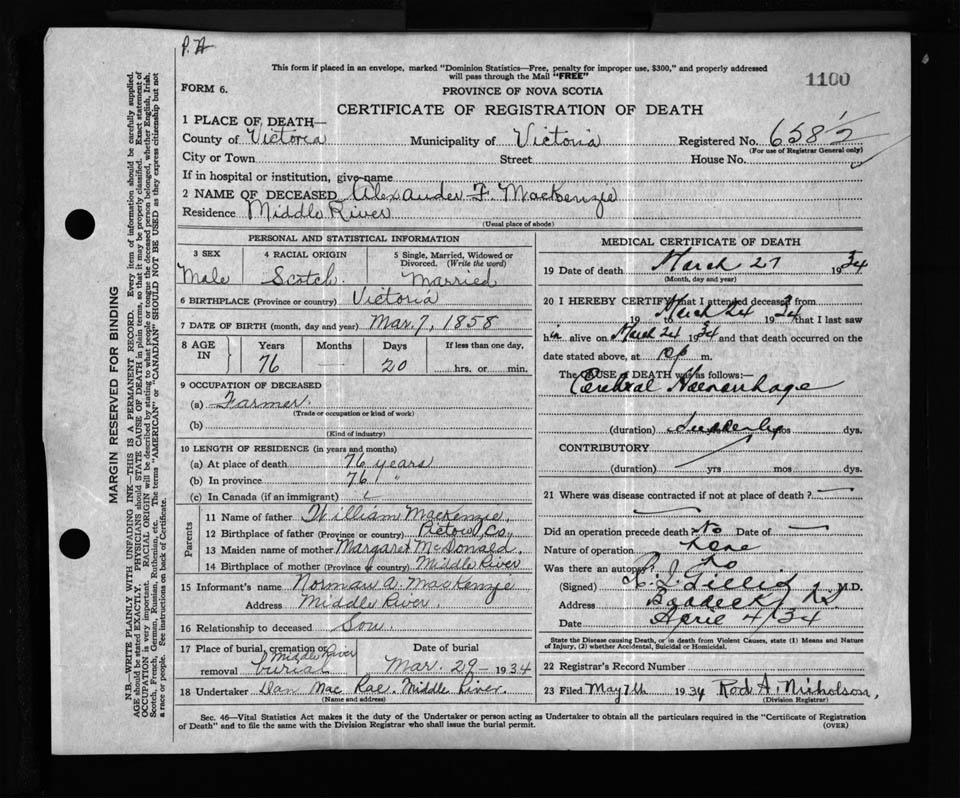 P.H
This form if placed in an envelope, marked "Dominion Statistics—Free, penalty for improper use, $300," and properly addressed
will pass through the Mail "FREE"
1100
FORM 6.
PROVINCE OF NOVA SCOTIA
CERTIFICATE OF REGISTRATION OF DEATH
1 PLACE OF DEATH—
County of Victoria Municipality of Victoria Registered No. 658½
(For use of Registrar General only)
City or Town Street House No.
If in hospital or institution, give name
2 NAME OF DECEASED Alexander F. MacKenzie
Residence Middle River
(Usual place of abode)
PERSONAL AND STATISTICAL INFORMATION
3 SEX 4 RACIAL ORIGIN 5 Single, Married, Widowed or
Divorced. (Write the word)
Male Scotch. Married
6 BIRTHPLACE (Province or country) Victoria
7 DATE OF BIRTH (month, day and year) Mar. 7, 1858
8 AGE IN Years Months Days If less than one day,
76 — 20 hrs. or min.
9 OCCUPATION OF DECEASED
(a) Farmer.
(Trade or occupation or kind of work)
(b)
(Kind of industry)
10 LENGTH OF RESIDENCE (in years and months)
(a) At place of death 76 years
(b) In province 76 "
(c) In Canada (if an immigrant)
Parents
11 Name of father William MacKenzie.
12 Birthplace of father (Province or country) Pictow Co.,
13 Maiden name of mother Margaret McDonald.
14 Birthplace of mother (Province or country) Middle River
15 Informant's name Norman A. MacKenzie
Address Middle River.
16 Relationship to deceased Son.
17 Place of burial, cremation or Date of burial
Middle River
removal burial Mar. 29 - 1934
18 Undertaker Dan MacRae. Middle River.
(Name and address)
MEDICAL CERTIFICATE OF DEATH
19 Date of death March 27 1934
(Month, day and year)
20 I HEREBY CERTIFY that I attended deceased from
19 to March 24 1934 that I last saw
him alive on March 24 1934 and that death occurred on the
date stated above, at 10 p m.
The CAUSE of DEATH was as follows:—
Cerebral Haemorrhage
(duration) Suddenly yrs mos dys.
CONTRIBUTORY
(duration) yrs mos dys.
21 Where was disease contracted if not at place of death ?
Did an operation precede death? No Date of —
Nature of operation
Was there an autopsy? No
(Signed) C. L. Gillis M.D.
Address Baddeck, N.S.
Date April 4/34
State the Disease causing Death, or in death from Violent Causes, state (1) Means and Nature
of Injury, (2) whether Accidental, Suicidal or Homicidal.
22 Registrar's Record Number
23 Filed May 7th 1934 Rod A. Nicholson,
(Division Registrar)
Sec. 46—Vital Statistics Act makes it the duty of the Undertaker or person acting as Undertaker to obtain all the particulars required in the "Certificate of Registration
of Death" and to file the same with the Division Registrar who shall issue the burial permit.
(OVER)
MARGIN RESERVED FOR BINDING
N.B.—WRITE PLAINLY WITH UNFADING INK—THIS IS A PERMANENT RECORD. Every item of information should be carefully supplied.
AGE should be stated EXACTLY. PHYSICIANS should STATE CAUSE OF DEATH in plain terms, so that it may be properly classified. Exact statement of
OCCUPATION is very important. RACIAL ORIGIN will be described by stating to what people or tongue the deceased person belonged, whether English, Irish,
Scotch, French, German, Russian, Ruthenian, etc. The terms "AMERICAN" or "CANADIAN" SHOULD NOT BE USED as they express citizenship but not
a race or people. See instructions on back of Certificate.